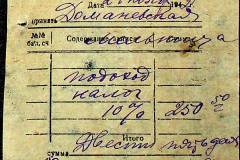 Дата
принята Доманевская
№№ бал. сч Содержание записи
подоход
налог
10% 250 50
Итого
сумма Двести пятьдесят